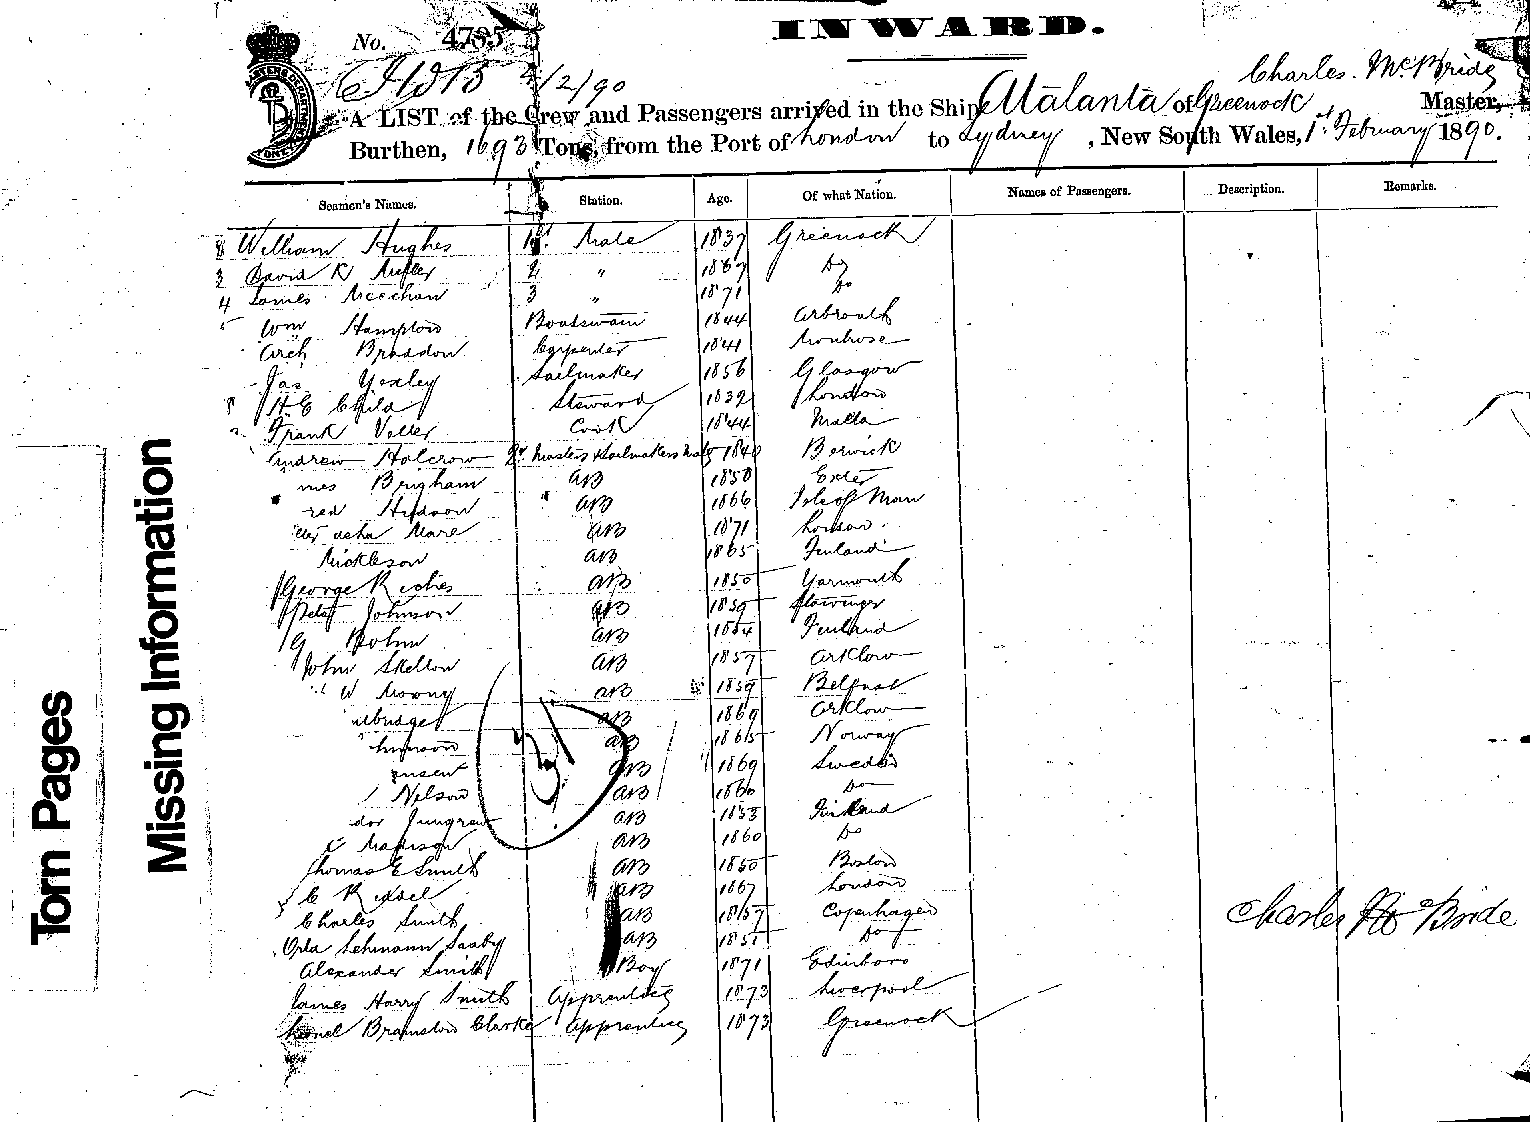 INWARD.
No. 4795
2/2/90
Charles McBride
A LIST of the Crew and Passengers arrived in the Ship Atalanta of Greenock Master,
Burthen, 1693 Tons, from the Port of London to Sydney, New South Wales, 1st February 1890.
Seamen's Names. Station. Age. Of what Nation. Names of Passengers. Description. Remarks.
William Hughes 1st Mate 1837 Greenock
3 David R 2 " 1867 Do
4 James Meechan 3 " 1871 Do
5 Wm Hampton Boatswain 1844 Arbroath
Arch Braddon Carpenter 1841 Montrose
Jas Yexley Sailmaker 1856 Glasgow
H.E Child Steward 1839 London
Frank Veller Cook 1844 Malta
Andrew Halcrow Qr Masters & Sailmakers Mate 1840 Berwick
mes Brigham AB 1858 Exeter
red Hudson AB 1866 Isle of Man
Mare AB 1871 London
Mickleson AB 1865 Finland
George Riches AB 1850 Yarmouth
Peter Johnson AB 1859 Stavanger
G Bohm AB 1864 Finland
John Skelton AB 1857 Arklow
W AB 1859 Belfast
AB 1869 Arklow
AB 1865 Norway
AB 1869 Sweden
Nelson AB 1860 Do
dor Jungren AB 1853 Finland
C Madison AB 1860 Do
Thomas E Smith AB 1850 Boston
C AB 1867 London
Charles Smith AB 1857 Copenhagen
Charles McBride
Orla Lehmann Saaby AB 1851 Do
Alexander Smith Boy 1871 Edinboro
James Harry Smith Apprentice 1873 Liverpool
Lionel Bramston Clarke Apprentice 1873 Greenock
31
Torn Pages
Missing Information